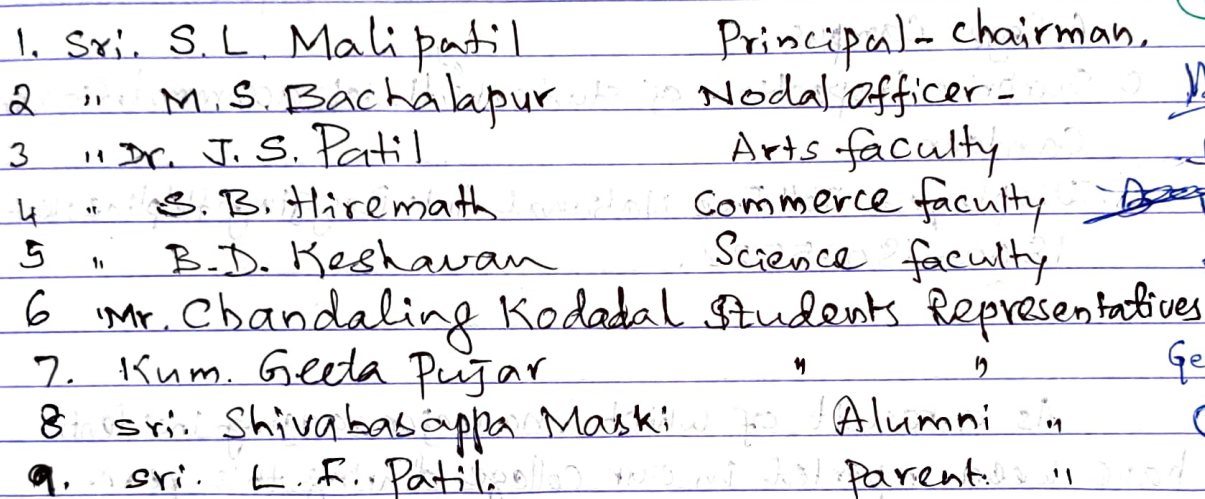 1. Sri. S. L. Malipatil Principal - Chairman.
2 " M. S. Bachalapur Nodal Officer -
3 " Dr. J. S. Patil Arts faculty
4 " S. B. Hiremath Commerce faculty
5 " B. D. Keshavan Science faculty
6 " Mr. Chandaling Kodadal Students Representatives
7. Kum. Geeta Pujar " " Ge
8 sri. Shivabasappa Maski Alumni "
9. sri. L. F. Patil. Parent. "